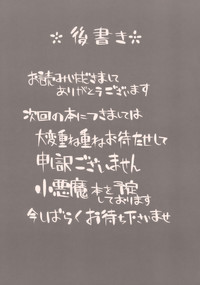 ☆後書き☆
お読みいただきまして
ありがとうございます
次回の本につきましては
大変重ね重ねお待たせして
申し訳ございません
小悪魔本を予定
しております
今しばらくお待ち下さいませ